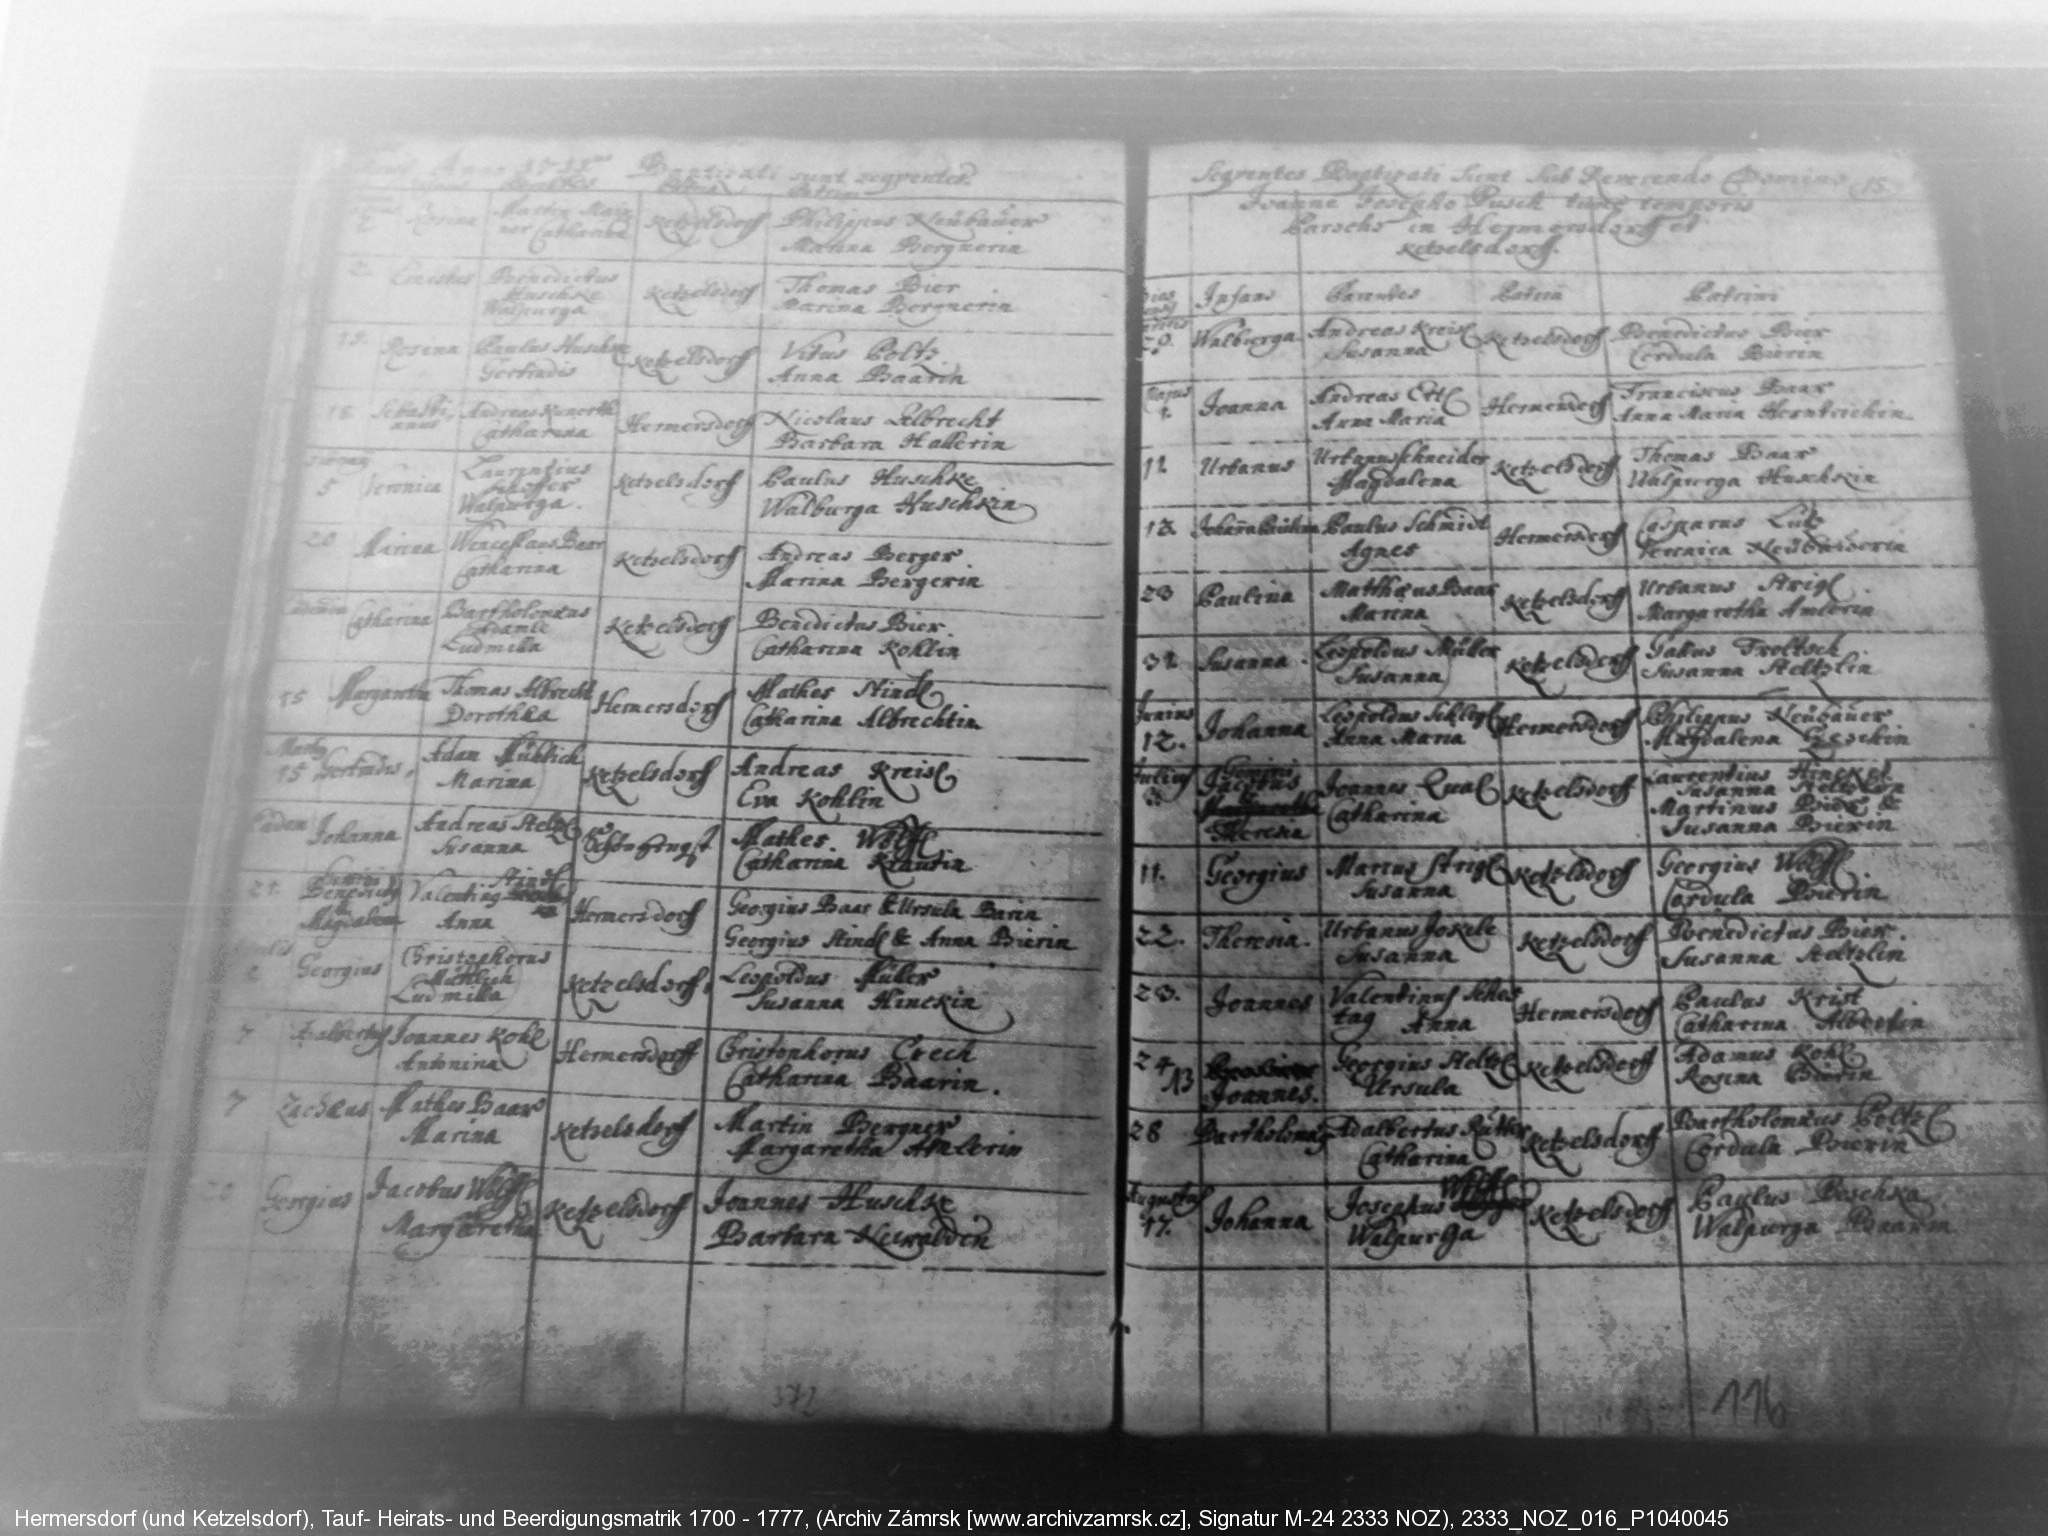 Anno Baptizati sunt seqventes.
Rosina Martin
Catharina Ketzelsdorf Philippus Neübaüer
Marina Bergnerin
2. Benedictus
Huschke
Walpurga Ketzelsdorf Thomas Bier
Marina Bergnerin
Rosina Paulus Huschke
Gertrudis Ketzelsdorf Vitus Poltz
Anna Baarin
18. Sebasti
anus Andreas Kunerth
Catharina Hermersdorf Nicolaus Albrecht
Barbara Hallerin
5 Veronica Laurentius
Walpurga. Ketzelsdorf Paulus Huschke
Walburga Huschkin
20 Marina Wenceslaus Baar
Catharina Ketzelsdorf Andreas Berger
Marina Bergerin
Eadem Catharina Bartholomæus
Adamle
Ludmilla Ketzelsdorf Benedictus Bier
Catharina Kohlin
15 Margaretha Thomas Albrecht
Dorothea Hemersdorf Mathes Stindl
Catharina Albrechtin
15 Gertrudis Adam Müblich
Marina Ketzelsdorf Andreas Kreisl
Eva Kohlin
Eadem Johanna Andreas Steltzl
Susanna Schönhengst Mathes Wölffl
Catharina Krautin
21. Gemini
Benedictus
&
Magdalena Valentinus Stindl
Anna Hermersdorf Georgius Baar & Ursula Barin
Georgius Stindl & Anna Bierin
Aprilis
2 Georgius Christophorus
Müblich
Ludmilla Ketzelsdorf Leopoldus Müller
Susanna Hinckin
7 Adalbertus Joannes Kohl
Antonina Hermersdorff Christophorus Czech
Catharina Baarin.
7 Zachæus Mathes Baar
Marina Ketzelsdorf Martin Bergner
Margaretha Amlerin
20 Georgius Jacobus Wölffl
Margaretha Ketzelsdorf Joannes Huschke
Barbara Neüwaldin
372
Seqventes Baptizati Sunt Sub Reverendo Domino
Joanne Josepho Pusch tunc temporis
Parocho in Hermersdorff et
Ketzelsdorff.
Dies Infans Parentes Patria Patrini
Walburga Andreas Kreisl
Susanna Ketzelsdorf Benedictus Bier
Cordula Bierin
Majus
1. Joanna Andreas Ertl
Anna Maria Hermersdorf Franciscus Baar
Anna Maria Herntrichin
11 Urbanus Urbanus Schneider
Magdalena Ketzelsdorf Thomas Baar
Walpurga Huschkin
18. Paulus Schmidt
Agnes Hermersdorf Casparus Lutz
Veronica Neübaüerin
23 Paulina Matthæus Baar
Marina Ketzelsdorf Urbanus Strigl
Margaretha Amlerin
31 Susanna Leopoldus Müller
Susanna Ketzelsdorf Gallus Troltsch
Susanna Steltzlin
Junius
12. Johanna Leopoldus Schlegl
Anna Maria Hermersdorf Philippus Neübaüer
Magdalena
Julius
8 Gemini
Jacobus
&
Theresia Joannes Qual
Catharina Ketzelsdorf Laurentius Hinckel
Susanna Steltzlin
Martinus Bier &
Susanna Bierin
11. Georgius Marcus Strigl
Susanna Ketzelsdorf Georgius Wölffl
Cordula Bierin
22. Theresia. Urbanus Jokele
Susanna Ketzelsdorf Benedictus Bier.
Susanna Steltzlin
23. Joannes Valentinus Schos
tag Anna Hermersdorf Paulus Krist
Catharina Albertin
24 Joannes. Georgius Steltzl
Ursula Ketzelsdorf Adamus Kohl
Rosina Bierin
28 Bartholomæus Adalbertus Rütter
Catharina Ketzelsdorff Bartholomæus Poltzl
Cordula Bierin
Augustus
17. Johanna Josephus Wölffl
Walpurga Ketzelsdorf Paulus Peschka
Walpurga Baarin
116
Hermersdorf (und Ketzelsdorf), Tauf- Heirats- und Beerdigungsmatrik 1700 - 1777, (Archiv Zámrsk [www.archivzamrsk.cz], Signatur M-24 2333 NOZ), 2333_NOZ_016_P1040045